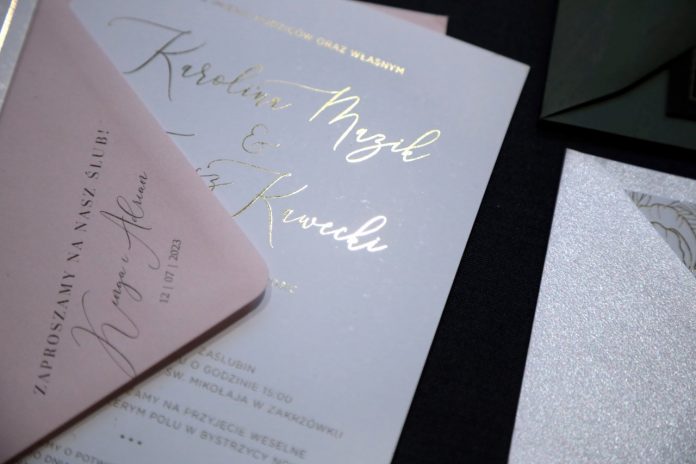 ORAZ WŁASNYM
Karolina Mazik
&
Kawecki
ZAŚLUBIN
O GODZINIE 15:00
ŚW. MIKOŁAJA W ZAKRZÓWKU
NA PRZYJĘCIE WESELNE
POLU W BYSTRZYCY
ZAPROSZAMY NA NASZ ŚLUB!
Kinga i Adrian
12 | 07 | 2023